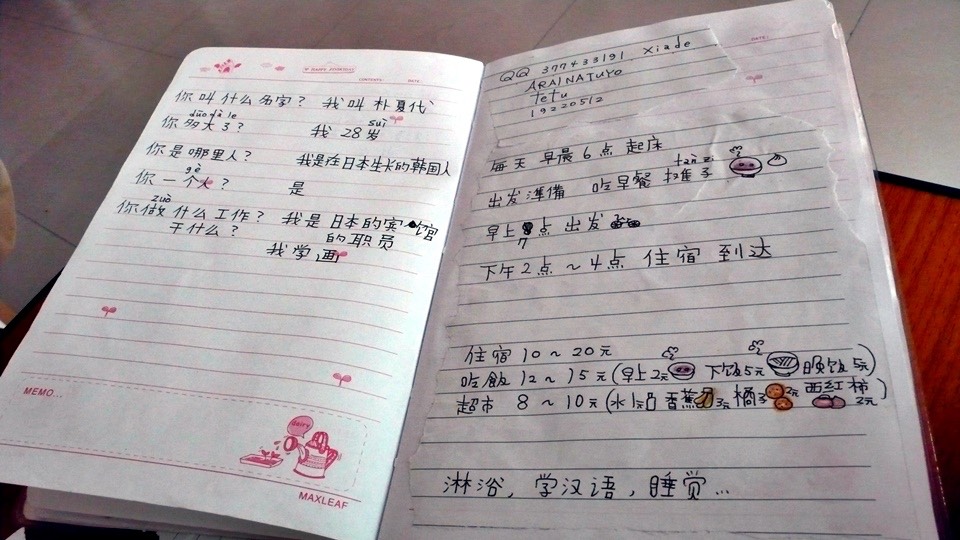 HAPPY
CONTENTS:
DATE:
你叫什么名字？ 我叫 朴夏代
duō dà le
你多大了？
suì
我 28 岁
你是哪里人？ 我是在日本生长的韩国人
gè
你一个人？ 是
zuò
你做什么工作？ 我是日本的宾馆
干什么？ 的职员
我学画
MEMO...
dairy
MAXLEAF
DATE:
QQ 377433191 Xiade
ARAINATUYO
tetu
19220512
每天 早晨 6点 起床
tān zi
出发準備 吃早餐 摊子
早上7点 出发
下午2点～4点 住宿 到达
住宿 10～20元
吃飯 12～15元(早上2元 下饭5元 晚饭5元)
超市 8～10元(水1元 香蕉3元 橘子2元 西红柿2元)
淋浴，学汉语，睡觉...